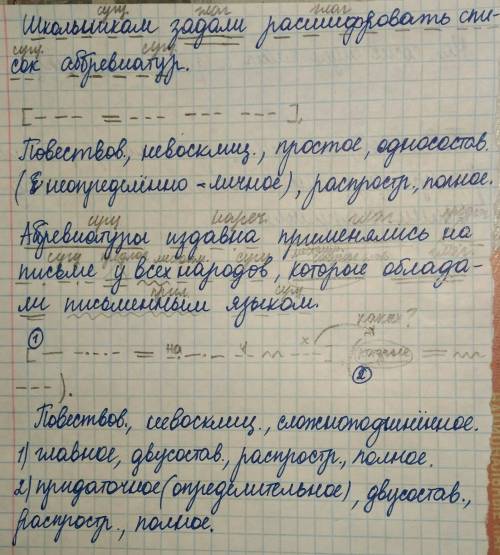 сущ. глаг глаг
Школьникам задали расшифровать спи-
сущ. сущ.
сок аббревиатур.
[--- = --- --- ---].
Повествов., невосклиц., простое, односостав.
(неопределённо-личное), распростр., полное.
сущ нареч. глаг
Абревиатуры издавна применялись на
сущ сущ
письме у всех народов, которые облада-
прил сущ.
ли письменным языком.
каких?
1 на у х которые
2
Повествов., невосклиц., сложноподчинённое.
1) главное, двусостав., распростр., полное.
2) придаточное (определительное), двусостав.,
распростр., полное.